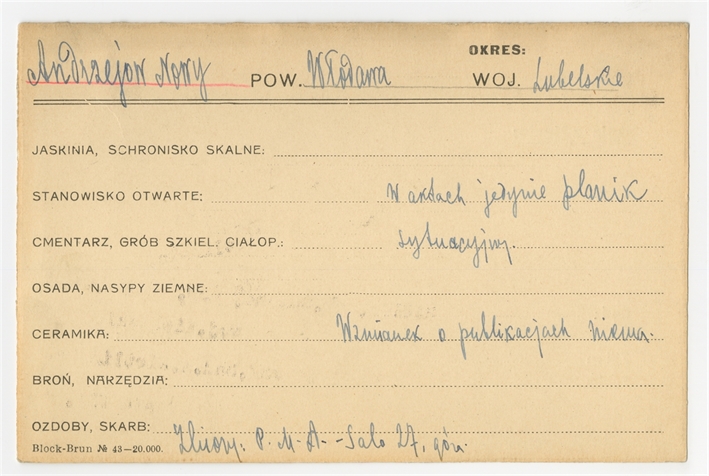 OKRES:
Andrzejow Nowy POW. Włodawa WOJ. Lubelskie
JASKINIA, SCHRONISKO SKALNE:
STANOWISKO OTWARTE: W aktach jedynie planik
CMENTARZ, GRÓB SZKIEL. CIAŁOP.: sytuacyjny.
OSADA, NASYPY ZIEMNE:
CERAMIKA: Wzmianek o publikacjach niema.
BROŃ, NARZĘDZIA:
OZDOBY, SKARB: Zbiory: P. M. A. - Sala 27,
Block-Brun № 43—20.000.